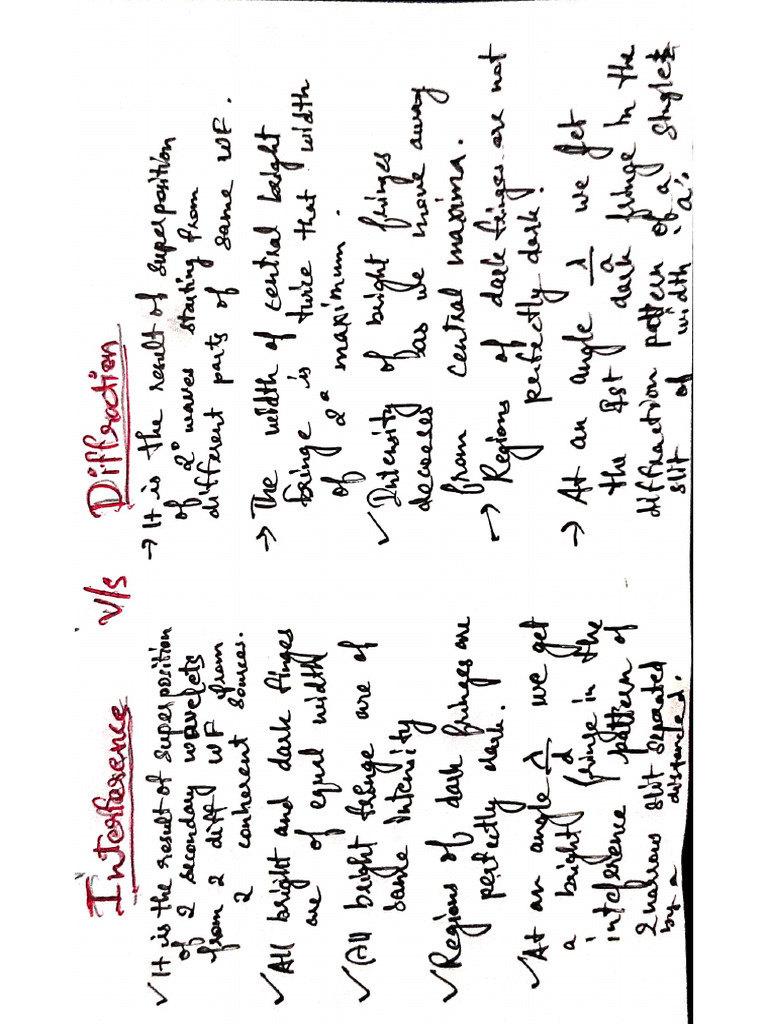 Interference v/s Diffraction
✓ It is the result of superposition
of 2 secondary wavelets
from 2 diff WF from
2 coherent sources.
✓ All bright and dark finges
are of equal width
✓ All bright fringe are of
same intensity
✓ Regions of dark fringes are
perfectly dark.
✓ At an angle λ/d we get
a bright fringe in the
inteference pattern of
2 narrow slit separated
by a distance d.
→ It is the result of superposition
of 2° waves starting from
different parts of same WF.
→ The width of central bright
fringe is twice that width
of 2° maximum.
✓ Intensity of bright fringes
decreses as we move away
from central maxima.
→ Regions of dark fringes are not
perfectly dark.
→ At an angle λ/a we get
the Ist dark fringe in the
diffraction pattern of a single
slit of width 'a'.